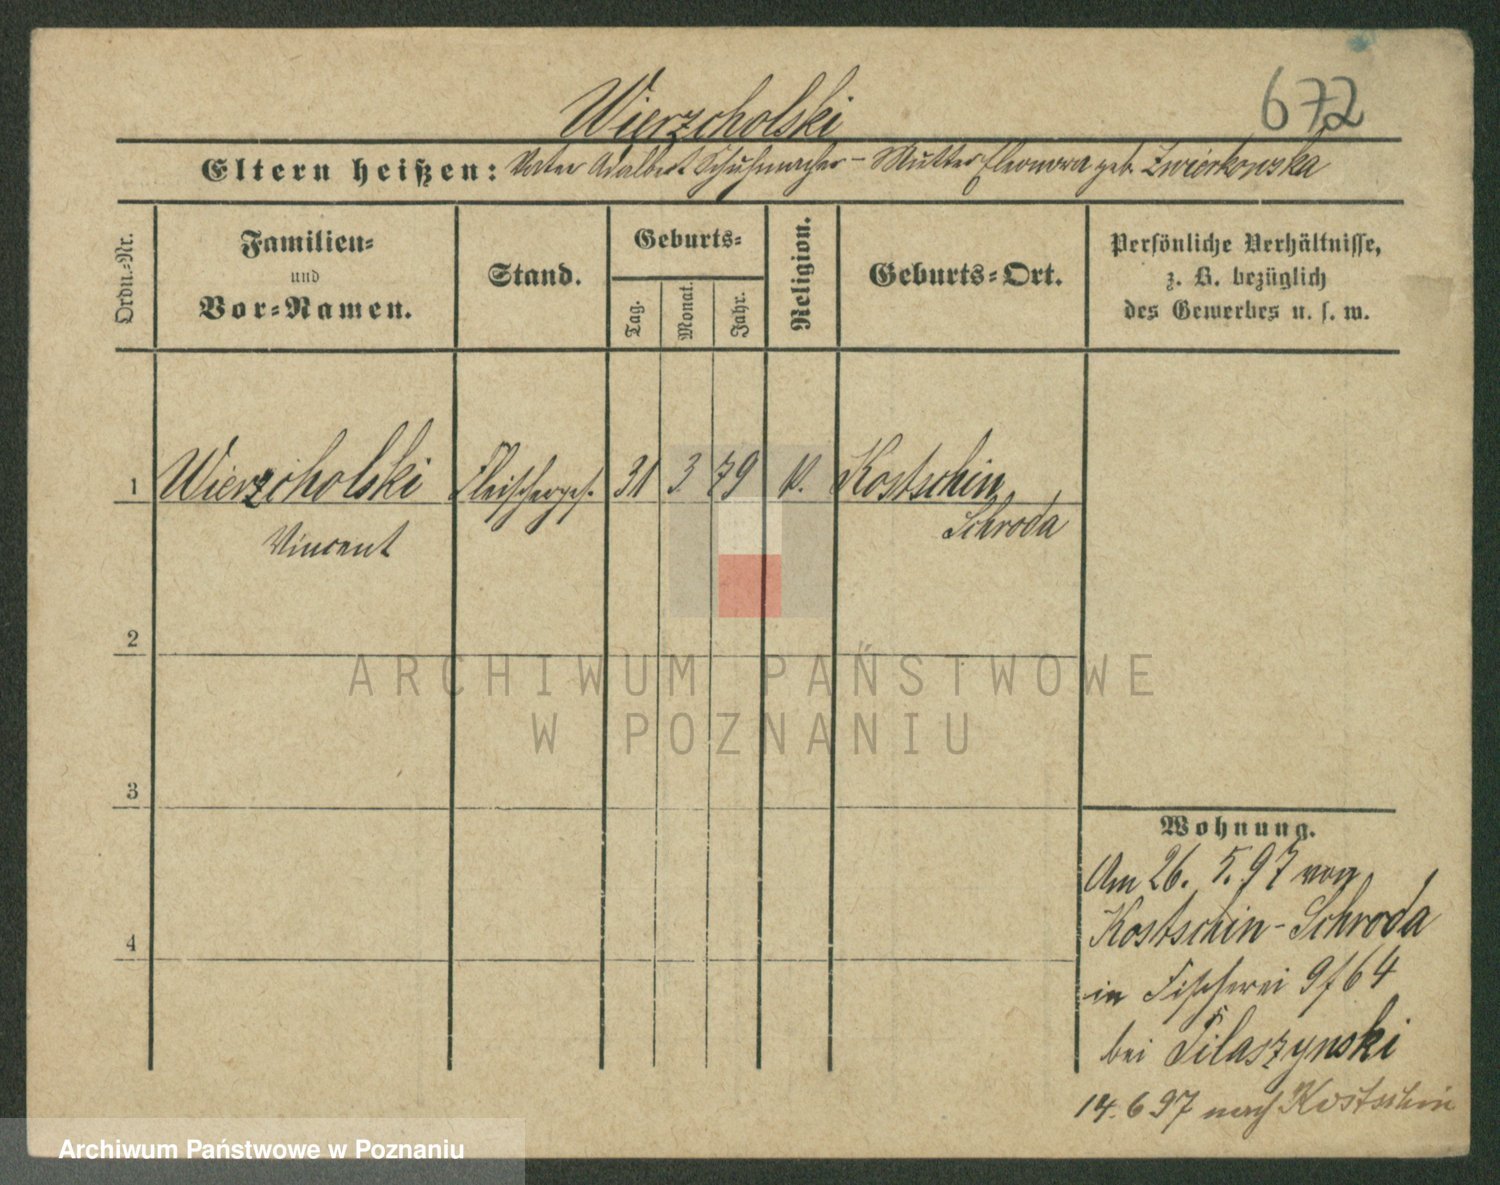 Wierzcholski
672
Eltern heißen: Vater Adalbert Schuhmacher - Mutter Eleonora geb. Zwierkowska
Ordn.-Nr.
Familien-
und
Vor-Namen.
Stand.
Geburts-
Tag.
Monat.
Jahr.
Religion.
Geburts-Ort.
Persönliche Verhältnisse,
z. B. bezüglich
des Gewerbes u. s. w.
1 Wierzcholski Fleischerges. 31 3 79 k. Kostschin
Vincent Schroda
2
ARCHIWUM PAŃSTWOWE
W POZNANIU
3
Wohnung.
Am 26. 5. 97 von
Kostschin-Schroda
4
in Fischerei 9/64
bei Filaszynski
14. 6 97 nach Kostschin
Archiwum Państwowe w Poznaniu